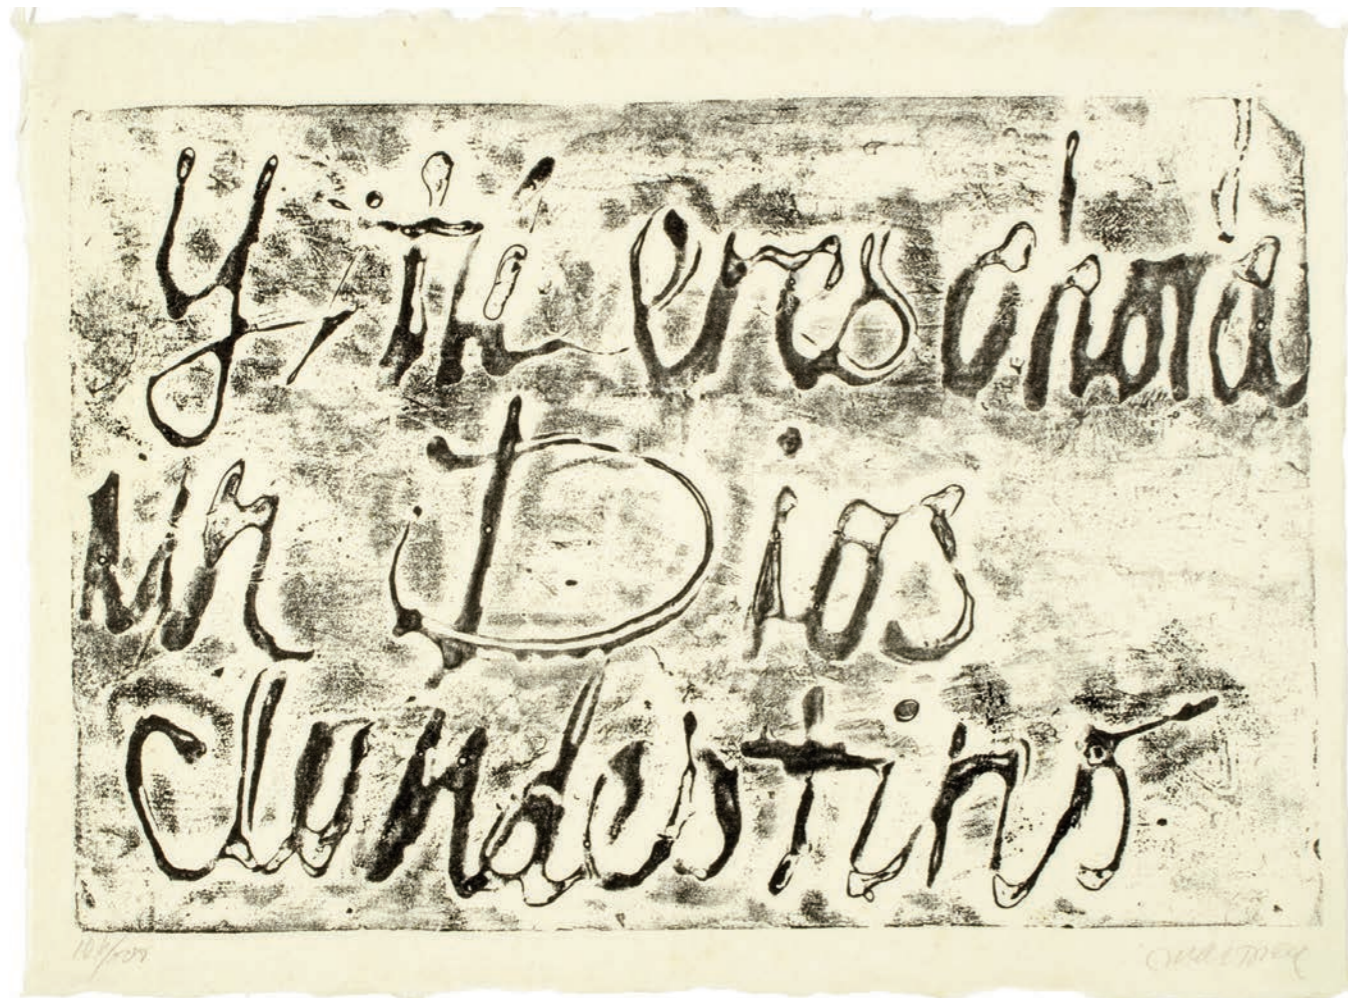 Y, tú eres ahora
un Dios
clandestino